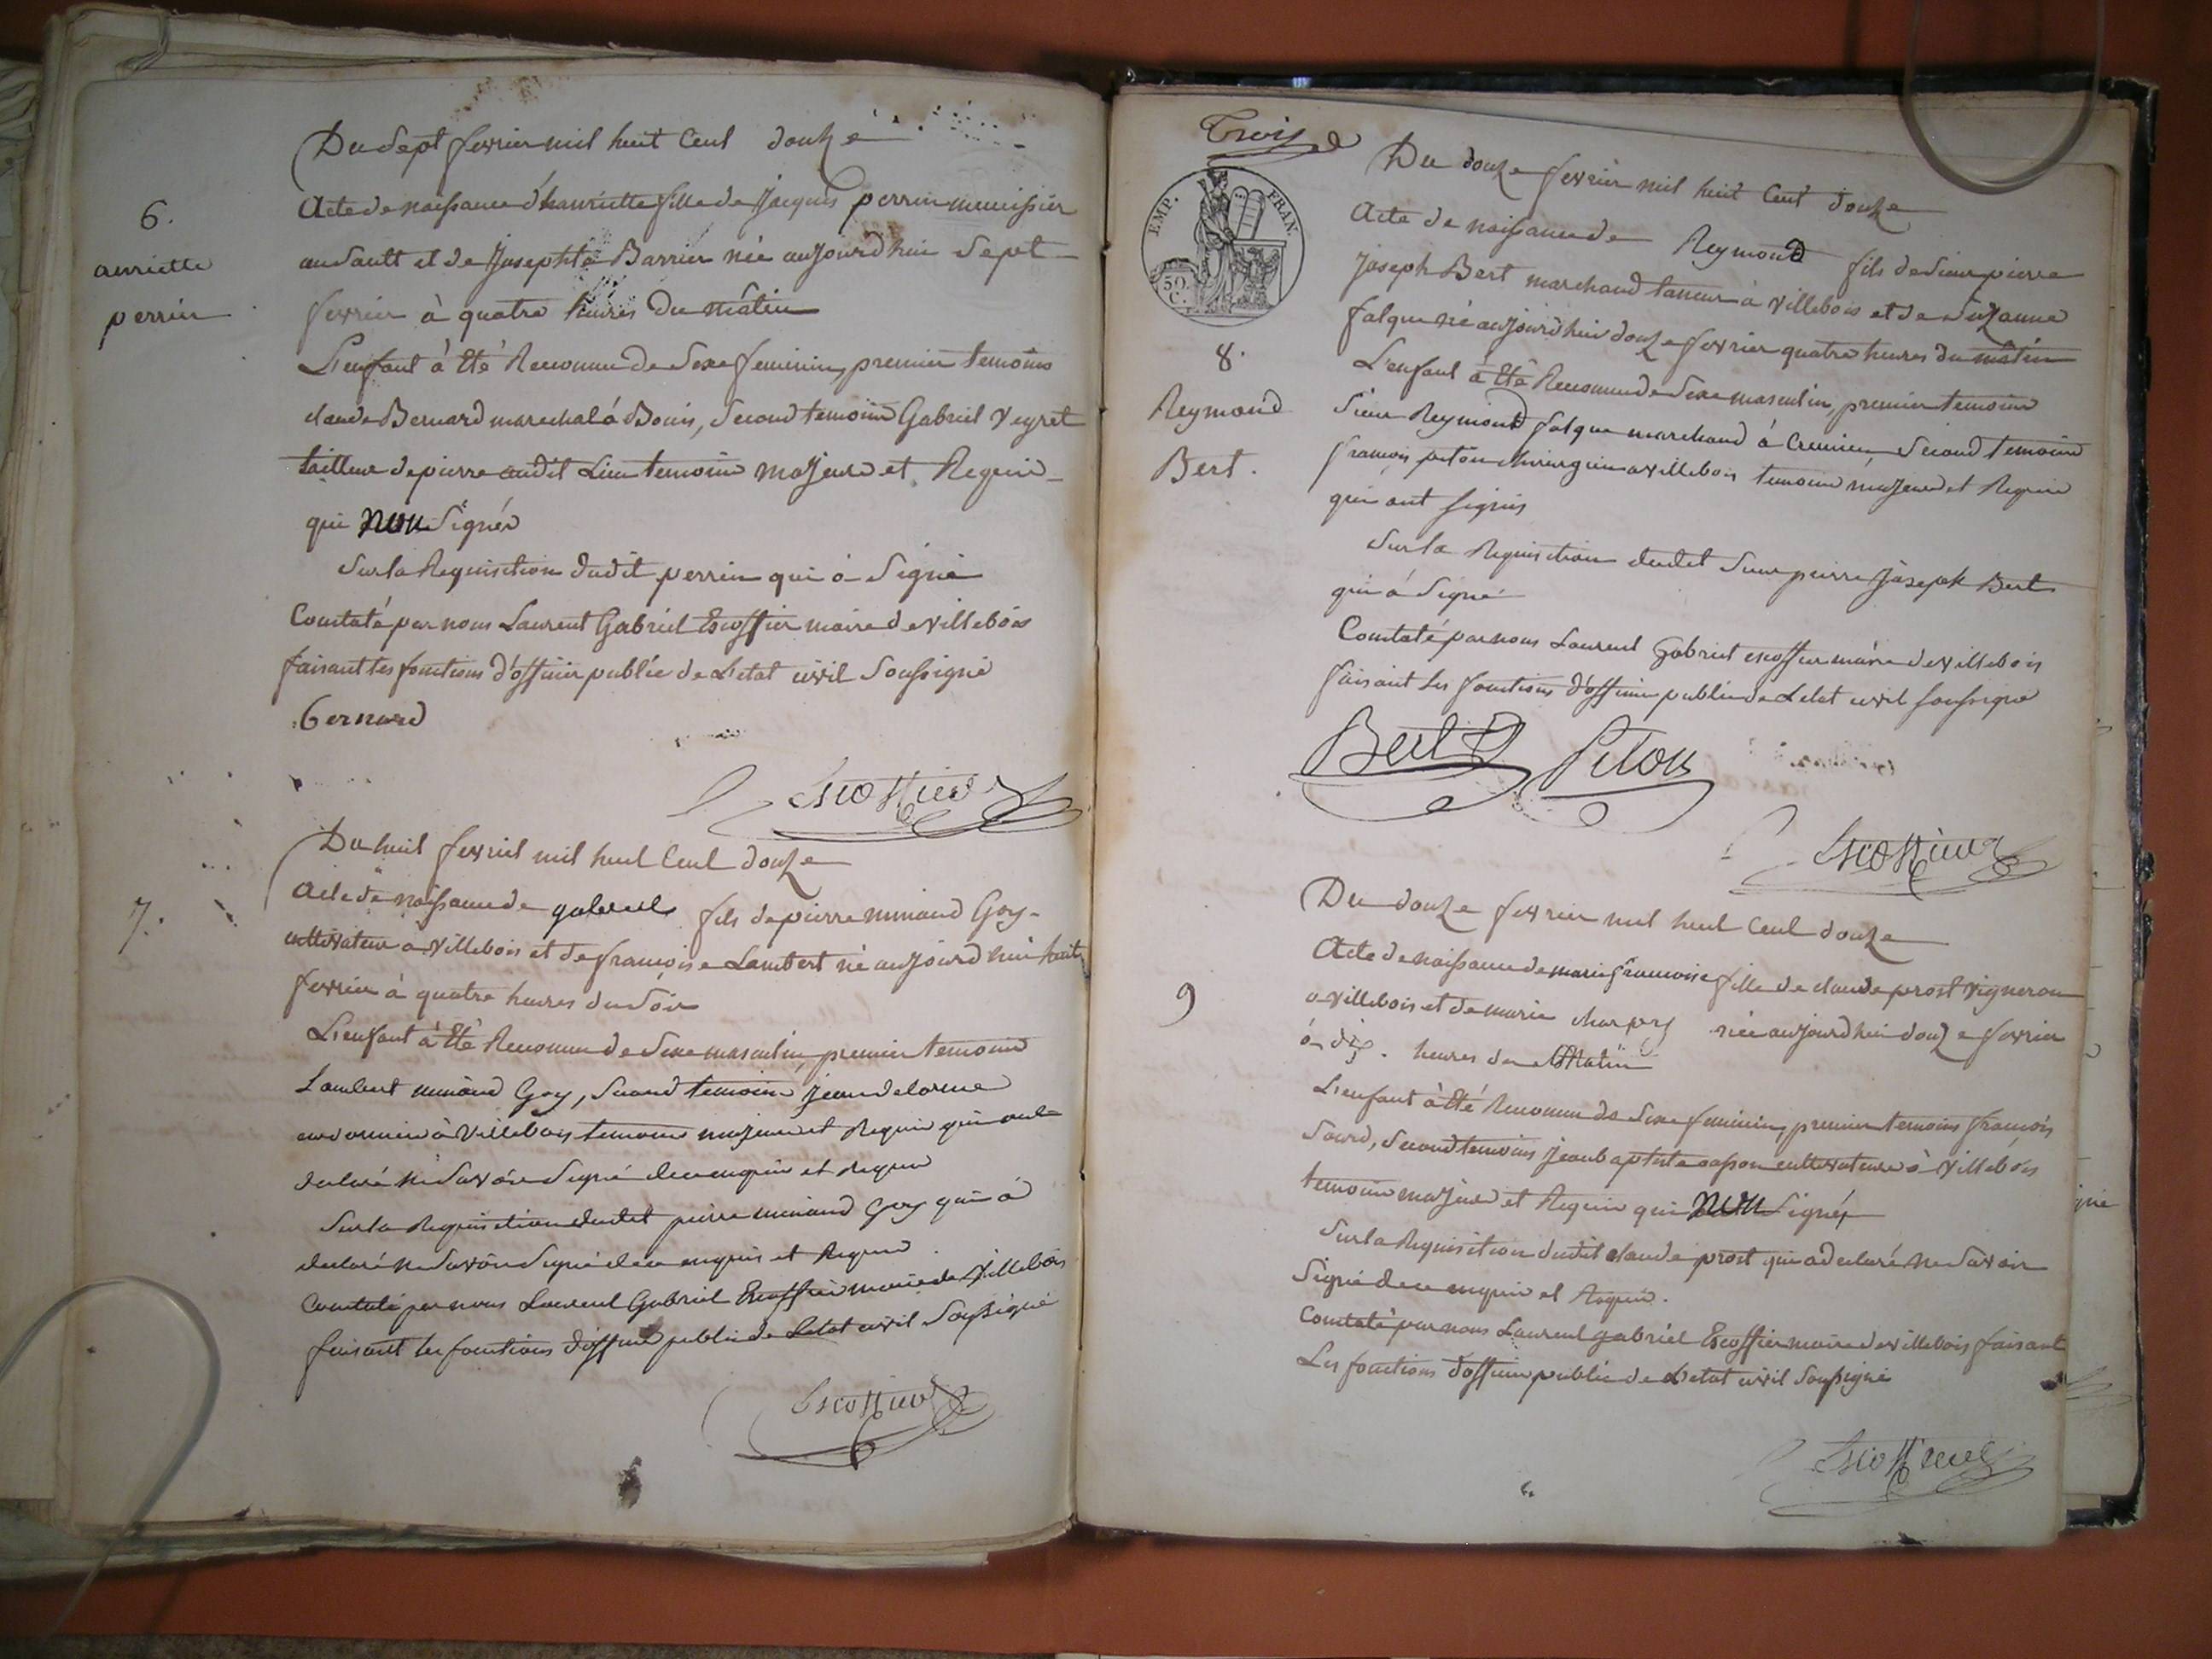 Du Sept fevrier mil huit Cent douze
6.
auriette
perrin
Acte de naissance d'hauriette fille de Jacques perrin menuissier
au Sault et de Josephte Barrier née aujourd'hui Sept
fevrier à quatre heures Du matin
L'enfant à Eté Reconnu de Sexe feminin, premier temoins
claude Bernard marechal à Bouis, Second temoin Gabriel Veyret
tailleur de pierre audit Lieu temoins majeurs et Requis
qui non Signés
Sur la Requisition dudit perrin qui à Signé
Constaté par nous Laurent Gabriel Escoffier maire de villebois
faisant les fonctions d'officier public de L'etat civil Soussigné
bernard
Escoffier
7.
Du huit fevrier mil huit Cent douze
Acte de naissance de gabriel fils de pierre minaud Goy
cultivateur à villebois et de francoise Lambert né aujourd'hui huit
fevrier à quatre heures du Soir
L'enfant à Eté Reconnu de Sexe masculin, premier temoins
Lambert minaud Goy, Second temoin jean delorme
cordonnier à Villebois temoins majeurs et Requis qui ont
declaré ne Savoir Signé de ce enquis et Requis
Sur la Requisition dudit pierre minaud Goy qui à
declaré ne Savoir Signé de ce enquis et Requis
Constaté par nous Laurent Gabriel Escoffier maire de Villebois
faisant les fonctions d'officier public de L'etat civil Soussigné
Escoffier
Trois
EMP. FRAN.
50 C.
Du douze fevrier mil huit Cent douze
8.
Reymond
Bert.
Acte de naissance de Reymond fils de Sieur pierre
Joseph Bert marchand tanneur à villebois et de Suzanne
falque né aujourd'hui douze fevrier quatre heures du matin
L'enfant à Eté Reconnu de Sexe masculin, premier temoins
Sieur Reymond falque marchand à Cremieu, Second temoins
francois piton chirurgien à villebois temoins majeurs et Requis
qui ont signés
Sur la Requisition dudit Sieur pierre Joseph Bert
qui à Signé
Constaté par nous Laurent Gabriel escoffier maire de villebois
faisant les fonctions d'officier public de L'etat civil soussigné
Bert Piton
Escoffier
9
Du douze fevrier mil huit Cent douze
Acte de naissance de marie francoise fille de claude prost vigneron
à villebois et de marie charpy née aujourd'hui douze fevrier
à dix heures du Matin
L'enfant à Eté Reconnu de Sexe feminin, premier temoins francois
Sourd, Second temoins jean baptiste casson cultivateurs à Villebois
temoins majeurs et Requis qui non Signés
Sur la Requisition dudit claude prost qui a declaré ne Savoir
Signé de ce enquis et Requis.
Constaté par nous Laurent gabriel Escoffier maire de villebois faisant
Les fonctions d'officier public de L'etat civil Soussigné
Escoffier